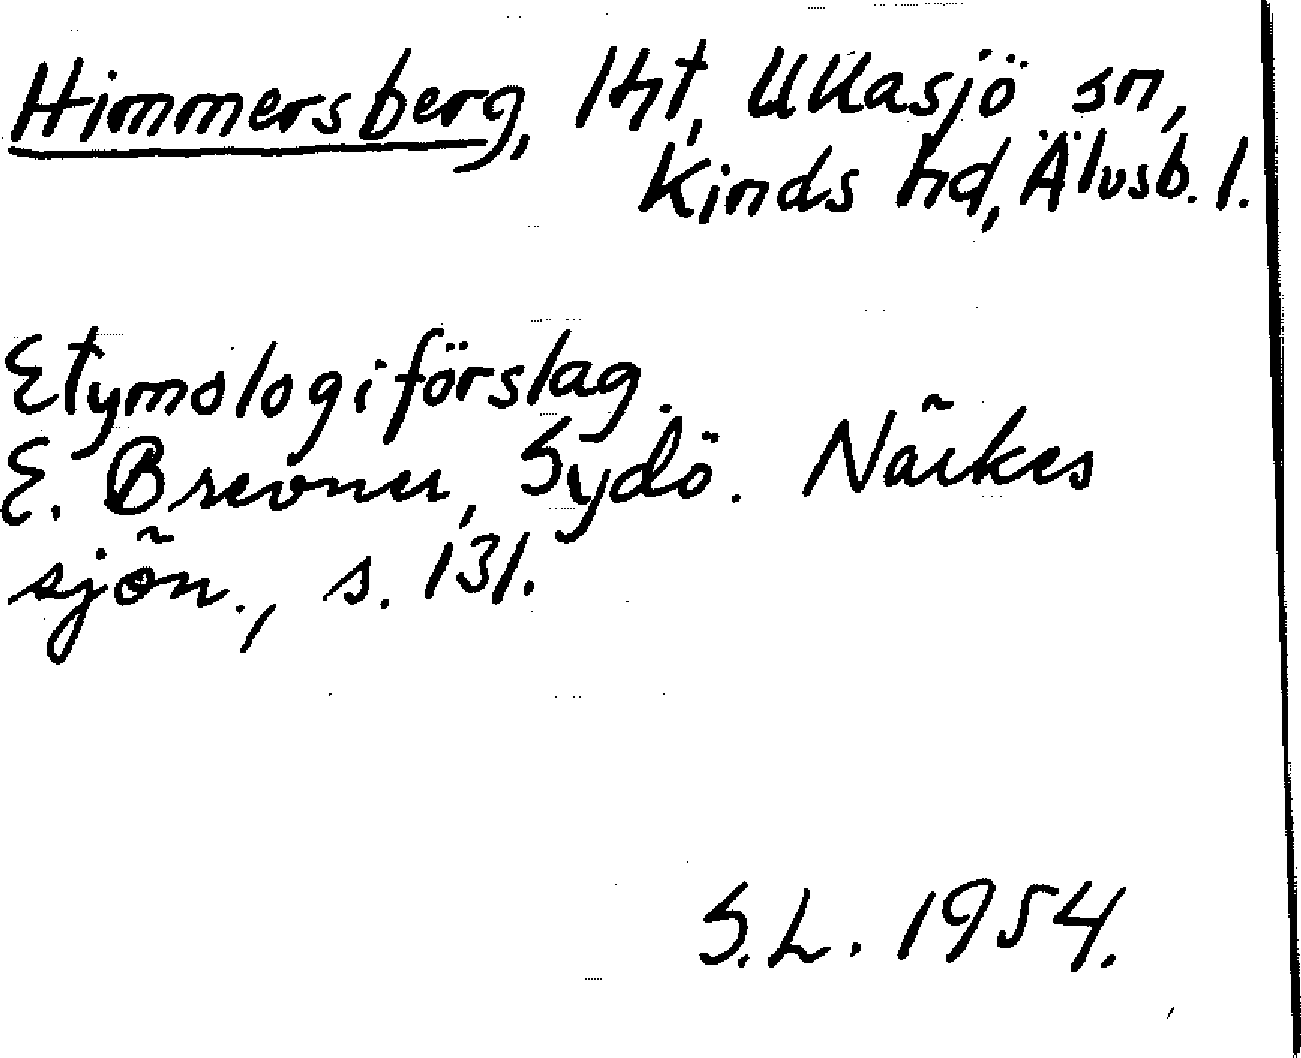 Himmersberg, lht, Ullasjö sn,
Kinds hd, Älvsb. l.
Etymologiförslag.
E. Brevner, Sydö. Närkes
sjön., s. 131.
S.L. 1954.